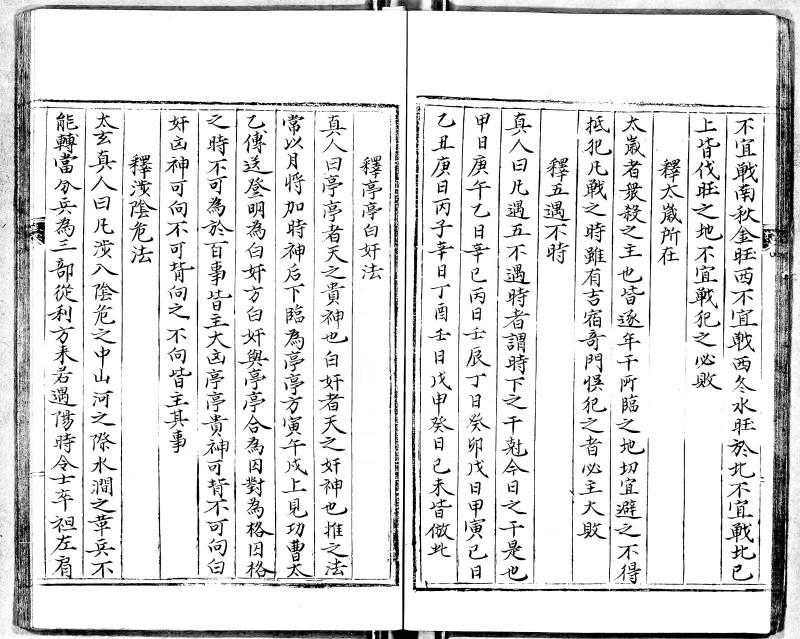 不宜戰南秋金旺西不宜戰西冬水旺於北不宜戰北已
上皆伐旺之地不宜戰犯之必敗
釋太歲所在
太歲者衆殺之主也皆逐年干所臨之地切宜避之不得
抵犯凡戰之時雖有吉宿奇門悞犯之者必主大敗
釋五遇不時
真人曰凡遇五不遇時者謂時下之干尅今日之干是也
甲日庚午乙日辛巳丙日壬辰丁日癸卯戊日甲寅己日
乙丑庚日丙子辛日丁酉壬日戊申癸日己未皆倣此
釋亭亭白奸法
真人曰亭亭者天之貴神也白奸者天之奸神也推之法
常以月將加時神后下臨為亭亭方寅午戌上見功曹太
乙傳送登明為白奸方白奸與亭亭合為囙對為格囙格
之時不可為於百事皆主大凶亭亭貴神可背不可向白
奸凶神可向不可背向之不向皆主其事
釋涉陰危法
太玄真人曰凡涉入陰危之中山河之際水澗之葦兵不
能轉當分兵為三部從利方来若遇陽時令士卒袒左肩